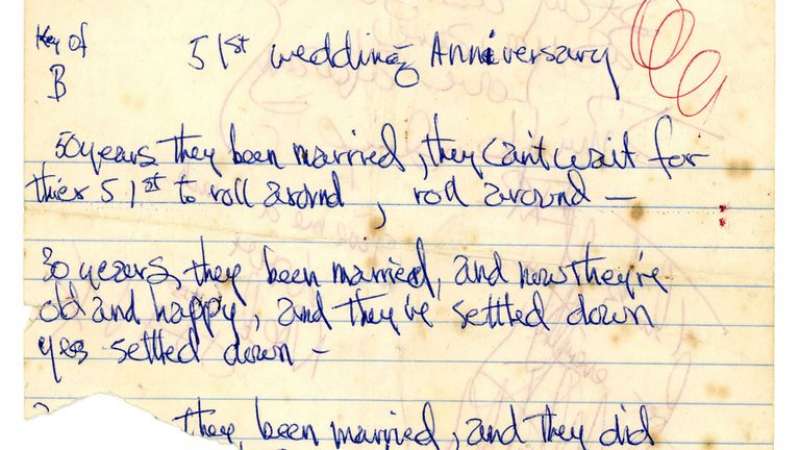 Key of
B
51st wedding Anniversary
50 years they been married, they can't wait for
thier 51st to roll around, roll around —
30 years, they been married, and now they're
old and happy, and they've settled down
yes settled down —
they been married, and they did